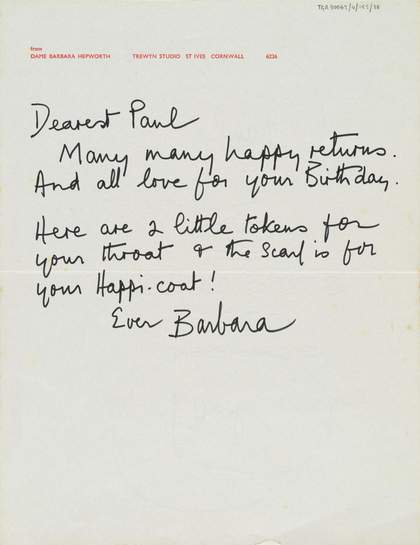 from
DAME BARBARA HEPWORTH TREWYN STUDIO ST IVES CORNWALL 6226
Dearest Paul
Many many happy returns.
And all love for your Birthday.
Here are 2 little tokens for
your throat & the Scarf is for
your Happi-coat!
Ever Barbara